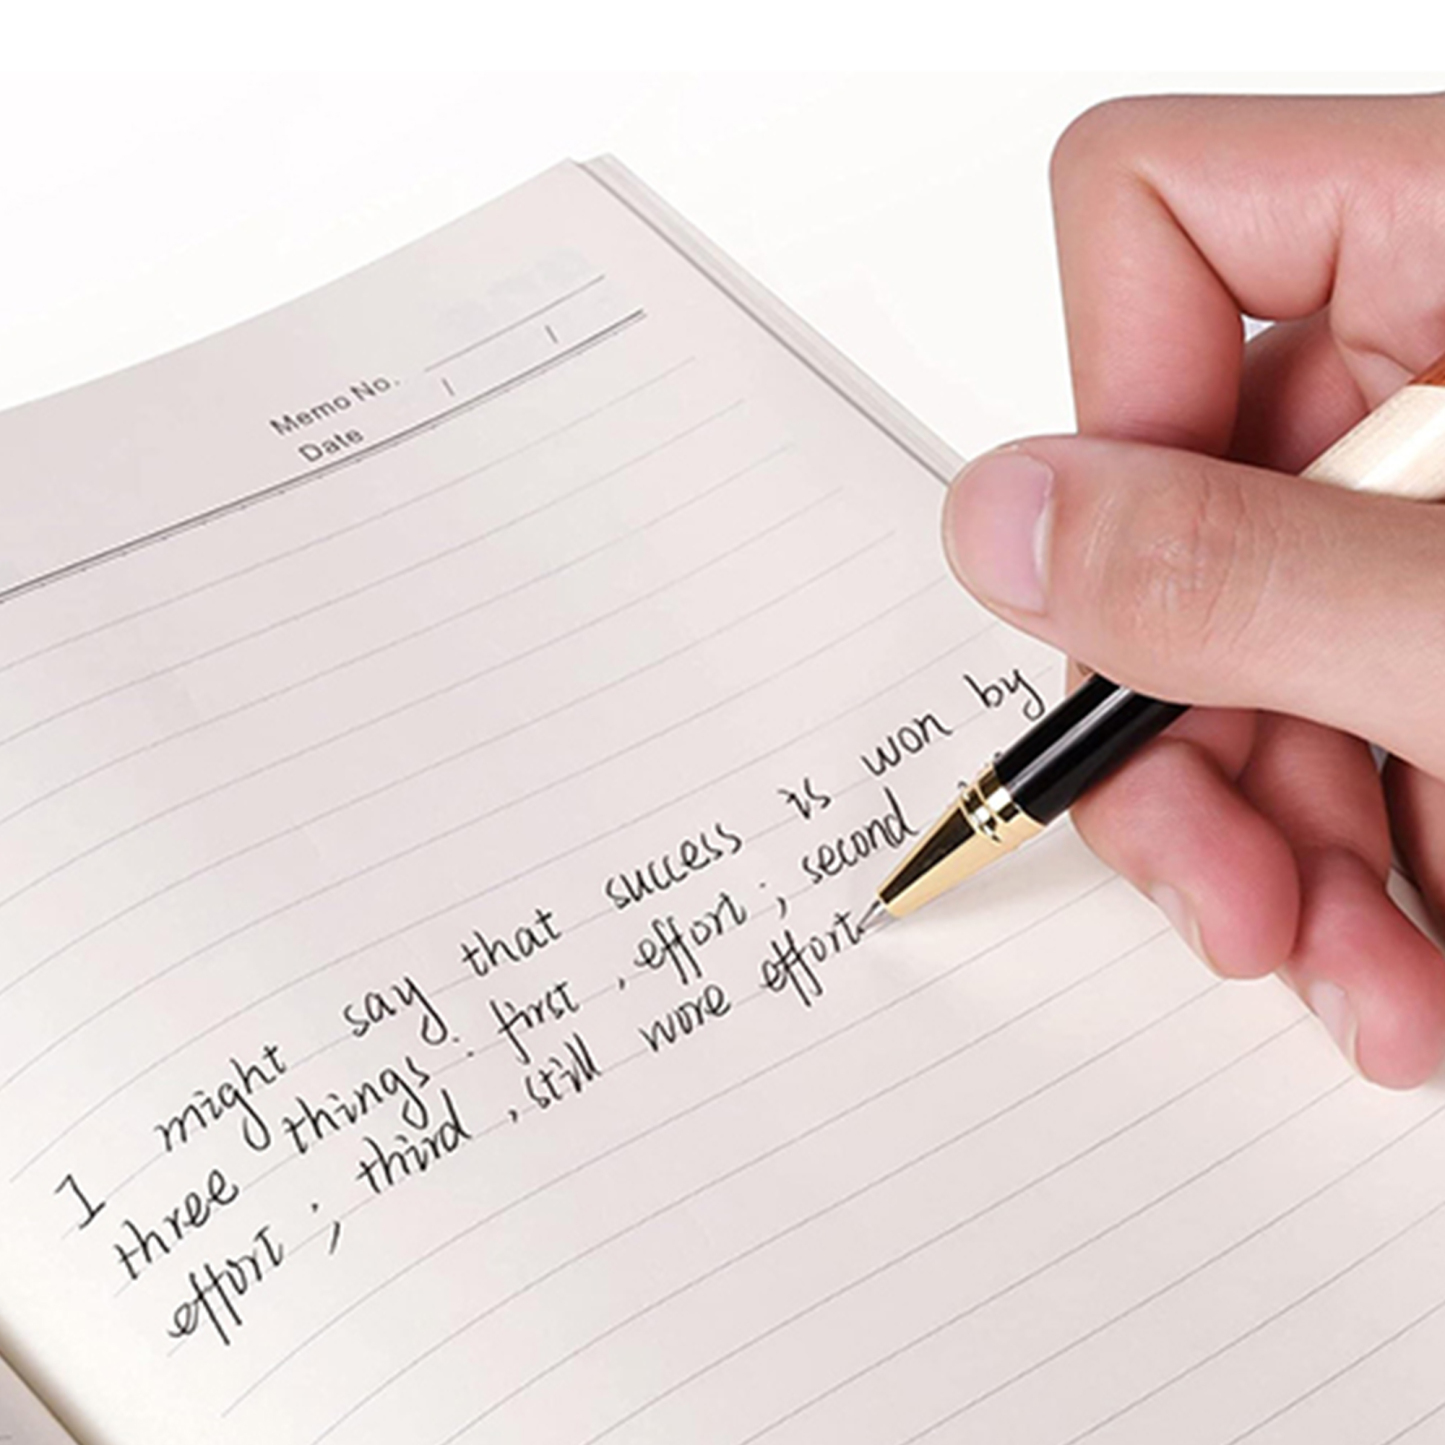 Memo No.
Date / /
I might say that success is won by
three things. first, effort; second
effort; third, still more effort.